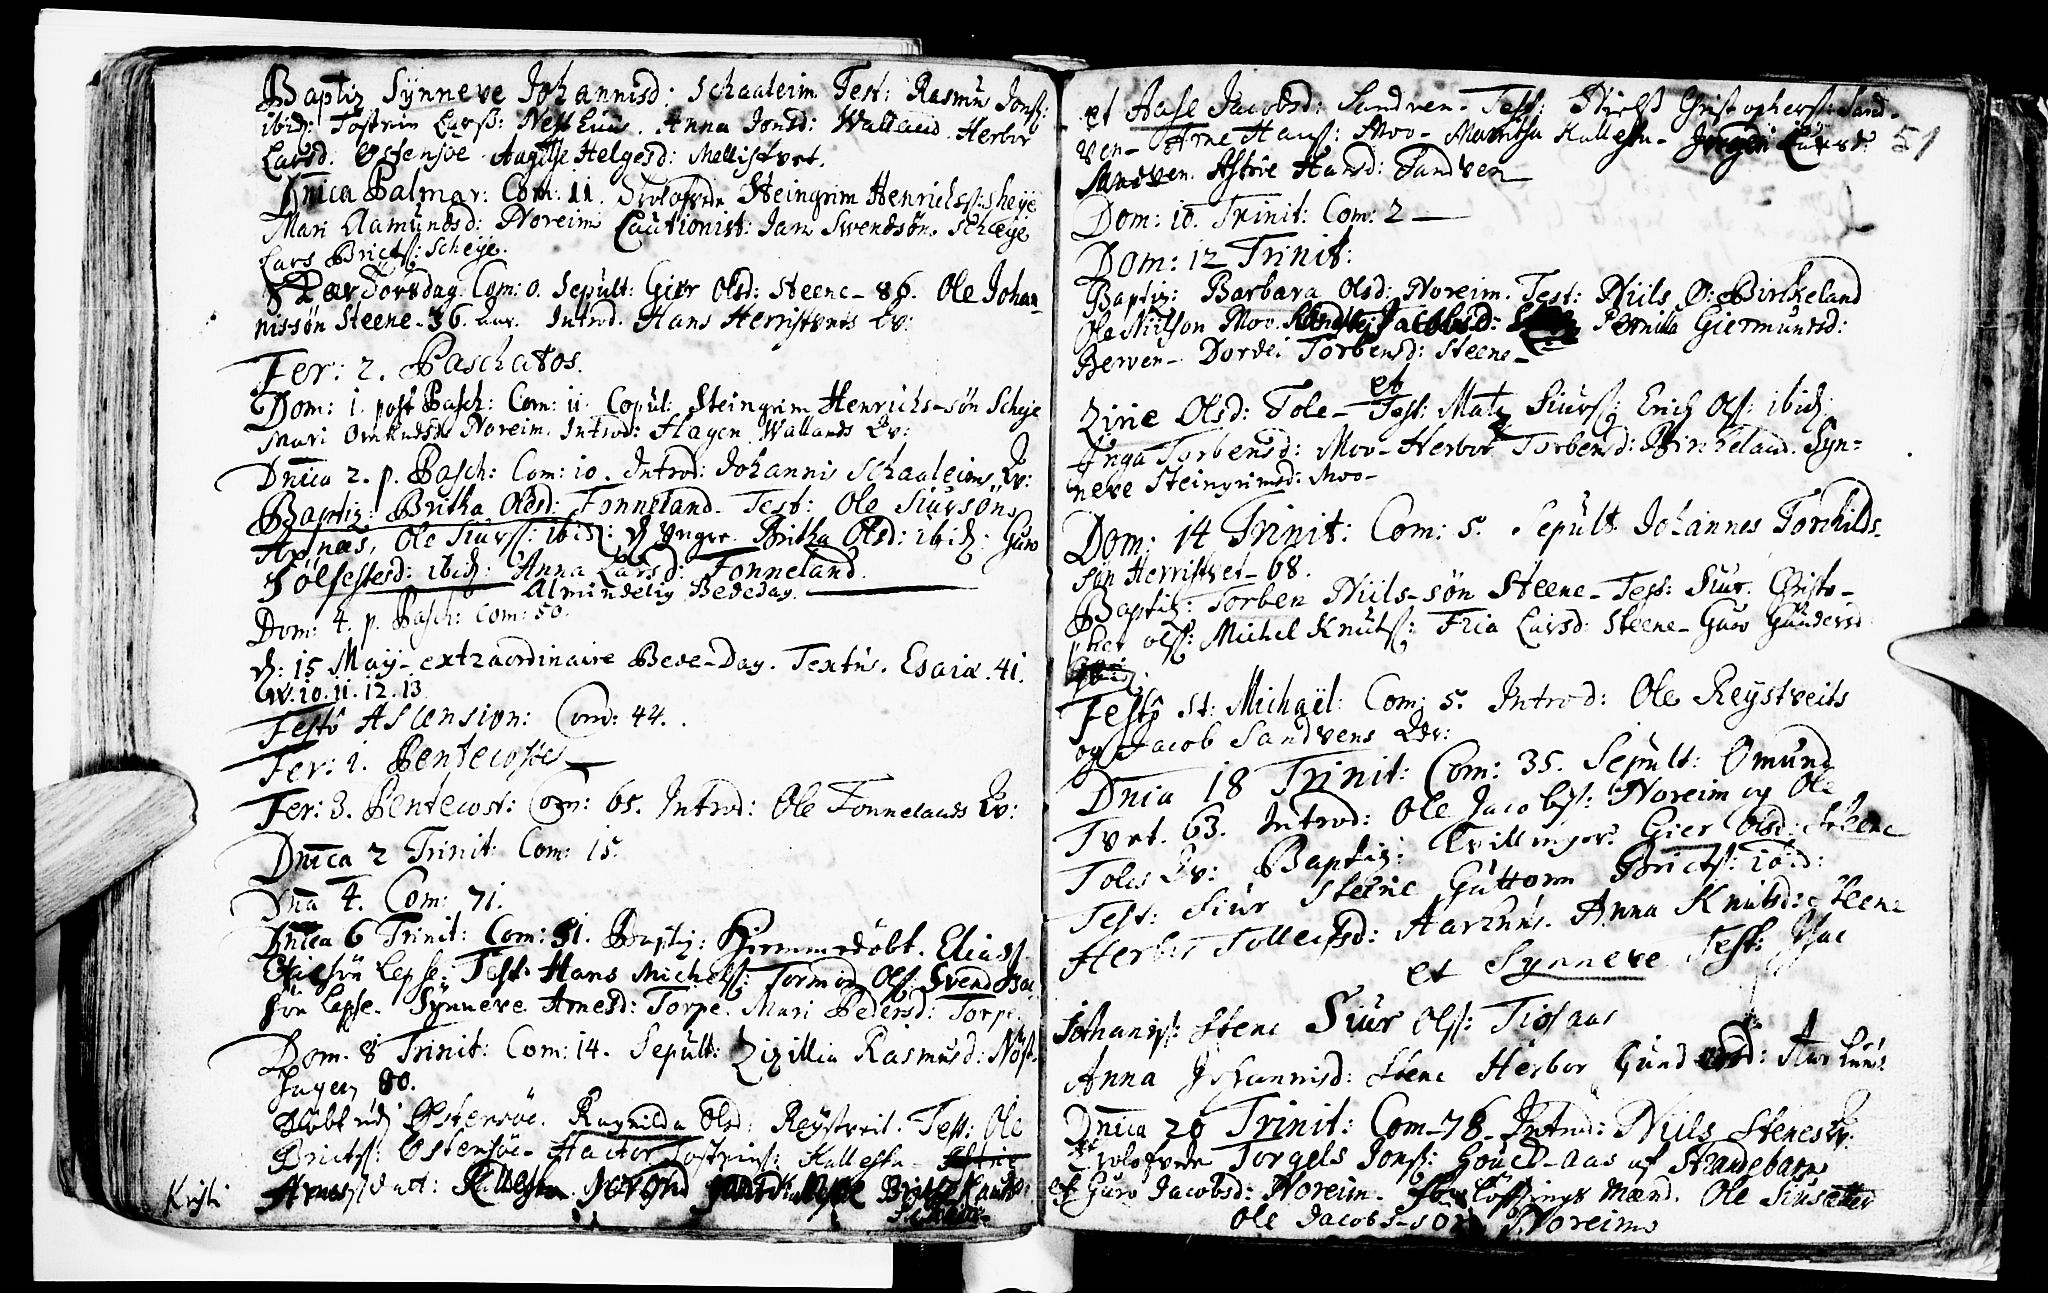 Baptiz Synneve Johannisd: Schaaleim Test: Rasmus Jonss:
ibid: Tostein Larss: Nesthuus. Anna Jonsd: Walland Herbor
Larsd: Østensøe Aagathe Helgesd: Mellistvet.
Dnica Palmar: Com: 11. Trolofvede Steingrim Henrichss: Scheye
Mari Aamundsd: Noreim Cautionist: Jan Swendsøn Scheye
Lars Brictss: Scheye.
Skærdorsdag Com: 0. Sepult: Giør Olsd: Steene - 86. Ole Johan-
nissøn Steene - 36. aar. Introd. Hans Herristvets Qv:
Fer: 2. Paschatos.
Dom: 1. post Pasch: Com: 11 Copul: Steingrim Henrichs-søn Scheye
Mari Omundsd: Noreim. Introd: Hagen Wallands Qv:
Dnica 2. p. Pasch: Com: 10. Introd: Johannis Schaaleims Qv:
Baptiz: Britha Olsd: Fonneland. Test: Ole Siursøn
Axnæs, Ole Siurss: ibid: d yngre. Britha Olsd: ibid: Guro
Sølfestersd: ibid: Anna Larsd: Fonneland.
Almindelig Bededag.
Dom: 4. p. Pasch: Com: 50.
d: 15 Maij - extraordinaire Bede-Dag. Textus. Esaiæ. 41.
v. 10. 11. 12. 13
Festo Ascension: Com: 44.
Fer: 1. Pentecostes
Fer: 3. Pentecost: Com: 65. Introd: Ole Fonnelands Qv:
Dnica 2 Trinit: Com: 15.
Dna 4. Com: 71.
Dnica 6 Trinit: Com: 51. Baptiz: Hiemmedøbt. Elias
søn Lepse. Test: Hans Michelss: Tormod Olss: Svend
søn Lepse. Synneve Arnesd: Torpe. Mari Pedersd: Torpe
Dom. 8 Trinit: Com: 14. Sepult: Zizillia Rasmusd: Nøst-
hagen 80.
Døbt udj Østensøe. Ragnilda Olsd: Reystveit. Test: Ole
Brictss: Østensøe - Hactor Tostenss: Kallestu -
Kristi Arnesdaat:
et Aase Jacobsd: Sandven - Test: Niels Christophers: Sand- 51
ven - Arne Hanss: Moo - Maritha Kallestu - Larsd:
Sandven. Astrie Hansd: Sandven
Dom: 10. Trinit: Com: 2
Dom: 12 Trinit:
Baptiz: Barbara Olsd: Noreim. Test: Niils O: Birkeland
Ole Niilson Moo. Pernilla Giermundsd:
Berven - Dordei Torbensd: Steene
et
Zirie Olsd: Tole - Test: Matz Siurss: Erich Olss: ibid:
Inga Torbensd: Moo - Herbor Torbensd: Birkeland. Syn-
neve Steingrimsd: Moo -
Dom: 14 Trinit: Com: 5. Sepult Johannes Torkilds-
søn Herristvet - 68.
Baptiz: Torben Niils-søn Steene - Test: Siur. Christo-
pher Olss: Michel Knutss: Fria Larsd: Steene - Guro Gundersd:
ibid:
Festo St: Michaël: Com: 5. Introd: Ole Reystveits
og Jacob Sandvens Qv:
Dnica 18 Trinit: Com: 35. Sepult: Omund
Tvet. 63. Introd: Ole Jacobss: Noreim og Ole
Toles Qv: Baptiz: Tvillinger. Gier Olsd: Steene
Test: Siur Steene Guttorm Brictss: ibid:
Herbor Tollefsd: Aarhuus. Anna Knutsd: Steene
et Synneve Test: Isac
Johaniss: Stene Siur Olss: Tiosaas
Anna Johannisd: Stene Herbor Gundersd: Aarhuus
Dnica 20 Trinit: Com - 78 - Introd: Niils Stenes Qv:
Trolofvede Torgels Jonss: af Strandebarm
et Guro Jacobsd: Noreim. Forlofnings Mænd. Ole
Ole Jacobs-søn Noreim